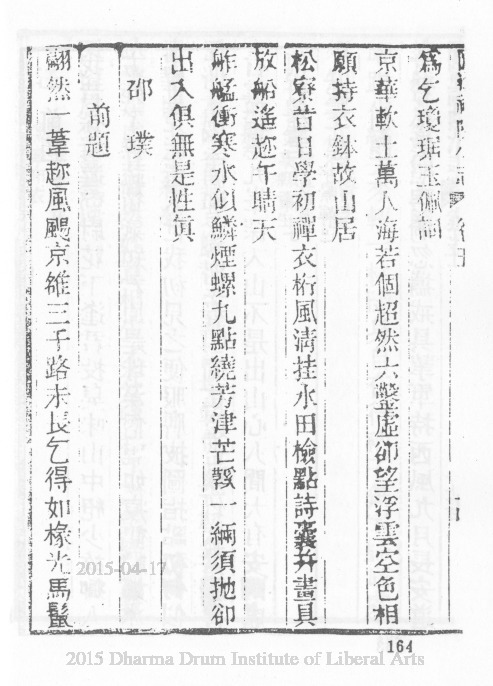 爲乞瓊琚玉佩詞
京華軟土萬人海若個超然六鑿虛卻望浮雲空色相
願持衣鉢故山居
松寮昔日學初禪衣桁風清挂水田檢點詩囊幷畫具
放船遙趂午晴天
舴艋衝寒水似鱗煙螺九點繞芳津芒鞵一緉須抛卻
出入俱無是性眞
邵璞
前題
翩然一葦趂風颺京雒三千路未長乞得如椽光馬鬣
2015-04-17
164
2015 Dharma Drum Institute of Liberal Arts